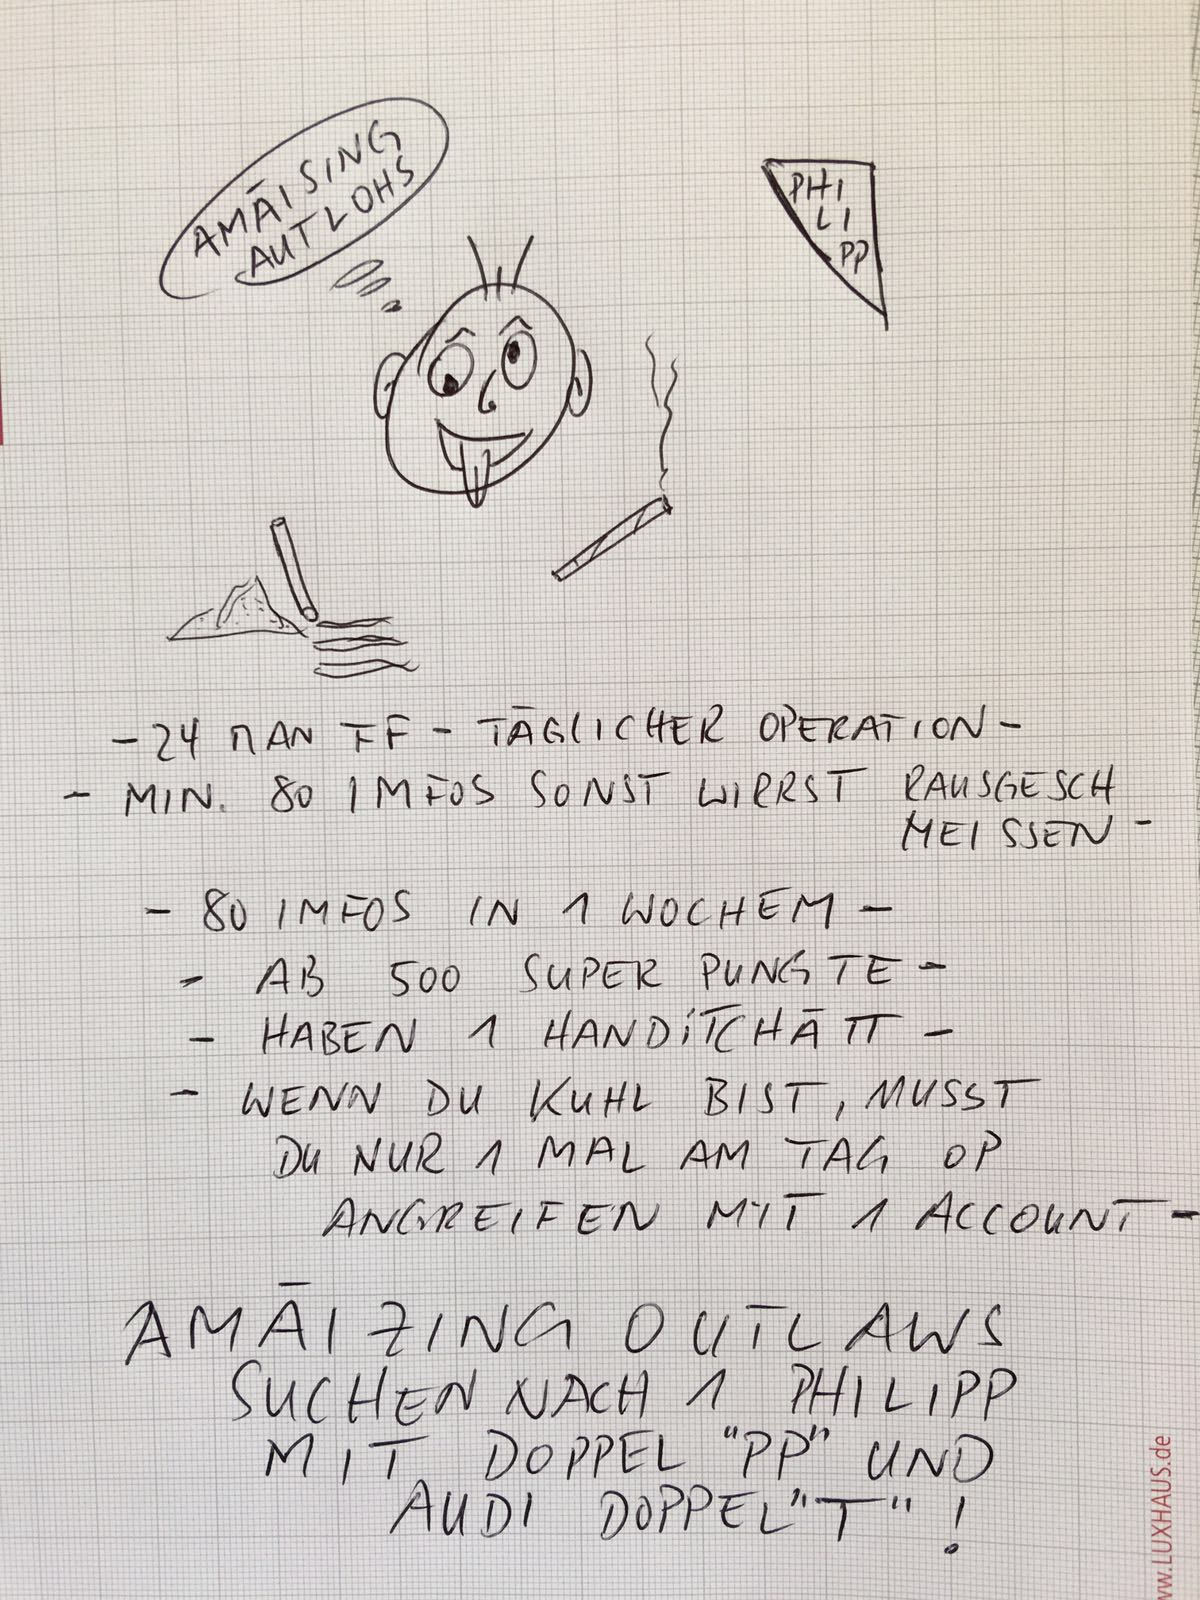 AMĀISING
AUTLOHS
PHI
LI
PP
- 24 MAN FF - TÄGLICHER OPERATION -
- MIN. 80 IMFOS SONST WIRRST RAUSGESCH
MEISSEN -
- 80 IMFOS IN 1 WOCHEM -
- AB 500 SUPER PUNGTE -
- HABEN 1 HANDITCHĀTT -
- WENN DU KUHL BIST, MUSST
DU NUR 1 MAL AM TAG OP
ANGREIFEN MIT 1 ACCOUNT -
AMĀIZING OUTLAWS
SUCHEN NACH 1 PHILIPP
MIT DOPPEL "PP" UND
AUDI DOPPEL "T" !
ww.LUXHAUS.de